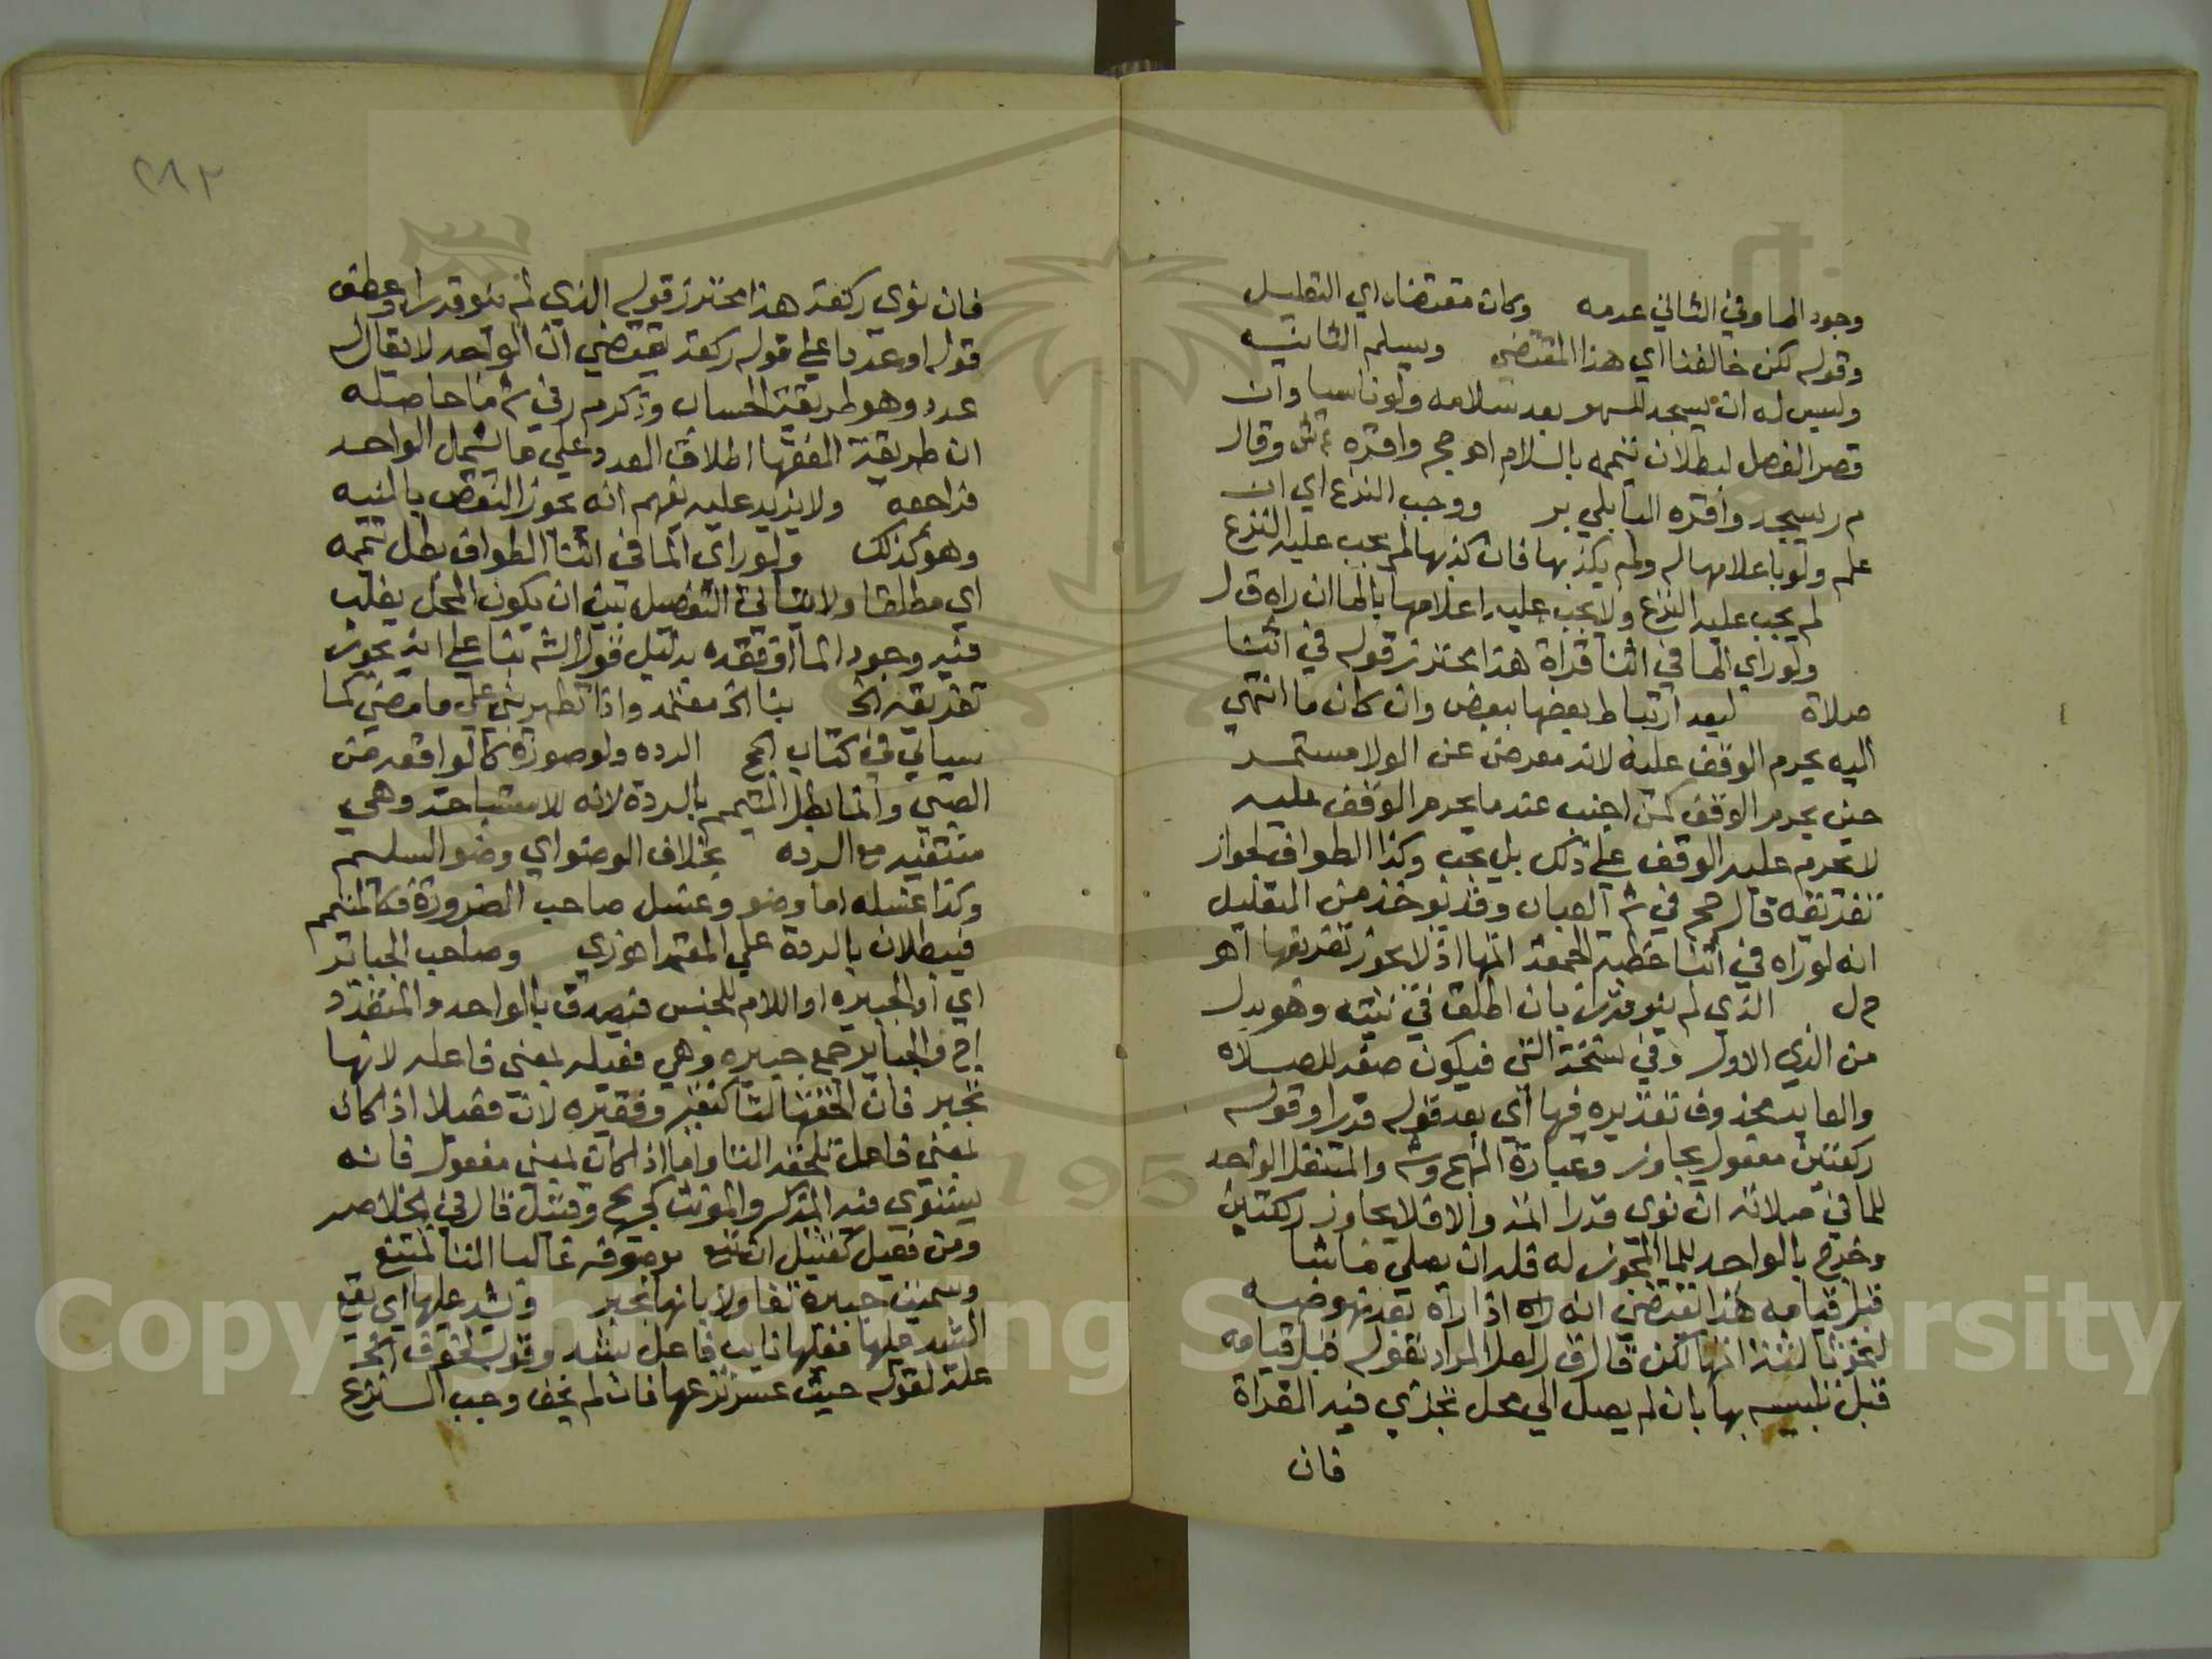 وجود الما وفي الثاني عدمه وكان مقتضاه اي التعليل
وقوله لكن خالفنا اي هذا المقتضي ويسلم الثانيه
وليس له ان يسجد للسهو بعد سلامه ولو ناسيا وان
قصر الفصل لبطلان تيممه بالسلام اهـ حج واقره ع ش وقال
م ر يسجد واقره البابلي بر ووجب النزع اي ان
علم ولو باعلامها له ولم يكذبها فان كذبها لم يجب عليه النزع
لم يجب عليه النزع ولا يجب عليه اعلامها بالما ان راه ق ل
ولو راي الما في اثنا قراة هذا محترز قوله في اثنا
صلاة لبعد ارتباط بعضها ببعض وان كان ما انتهي
اليه يحرم الوقف عليه لانه معرض عن الولا مستمر
حين يحرم الوقف كمن اجنب عندما يحرم الوقف عليه
لا يحرم عليه الوقف علي ذلك بل يجب وكذا الطواف لجواز
تفريقه قال حج في ش العباب وقد يوخذ من التعليل
انه لو راه في اثنا خطبة الجمعة اتمها اذ لا يجوز تفريقها اهـ
ح ل الذي لم ينو قدرا بان اطلق في نيته وهو بدل
من الذي الاول وفي نسخة التي فيكون صفة للصلاة
والعايد محذوف تقديره فيها اي بعد قوله قدرا وقوله
ركعتين مفعول يجاوز وعبارة المنهج وش والمتنفل الواجد
للما في صلاته ان نوي قدرا اتمه والا فلا يجاوز ركعتين
وخرج بالواجد للما المجوز له فله ان يصلي ما شا
قبل قيامه هذا يقتضي انه اذا راه بعد نهوضه
لنحو ثالثة اتمها لكن قال ق ل لعل المراد بقوله قبل قيامه
قبل تلبسه بها بان لم يصل الي محل تجزي فيه القراة
فان
٢٨٢
فان نوي ركعة هذا محترز قوله الذي لم ينو قدرا وعطف
قوله او عددا علي قوله ركعة يقتضي ان الواحد لا يقال له
عدد وهو طريقة الحساب وذكر م ر في ش ما حاصله
ان طريقة الفقها اطلاق العدد علي ما يشمل الواحد
فراجعه ولا يزيد عليه يفهم انه يجوز النقص بالنيه
وهو كذلك ولو راي الما في اثنا الطواف بطل تيممه
اي مطلقا ولا يتاتي التفصيل بين ان يكون المحل يغلب
فيه وجود الما او فقده بدليل قول الش بنا علي انه يجوز
تفريقه الخ بنا الخ معتمد واذا تطهر بني علي ما مضي كما
سياتي في كتاب الحج الرده ولو صورة كالواقعه من
الصبي وانما بطل التيمم بالردة لانه للاستباحة وهي
منتفيه مع الرده بخلاف الوضو اي وضو السليم
وكذا غسله اما وضو وغسل صاحب الضرورة فكالتيمم
فيبطلان بالردة علي المعتمد اهـ زي وصاحب الجباير
اي او الجبيره او اللام للجنس فيصدق بالواحد والمتعدد
اج ف الجباير جمع جبيره وهي فعيله بمعني فاعله لانها
تجبر فان الحقتها التا كفقير وفقيره لان فعيلا اذا كان
بمعني فاعل تلحقه التا واما اذا كان بمعني مفعول فانه
يستوي فيه المذكر والمونث كجريح وقتيل قال في الخلاصه
ومن فعيل كقتيل ان تبع موصوفه غالبا التا تمتنع
وسميت جبيرة تفاولا بانها تجبر وتشد عليها اي يقع
الشد عليها فعليها نايب فاعل تشد وقوله لخوف الخ
علة لقوله حيث عسر نزعها فان لم يخف وجب النزع